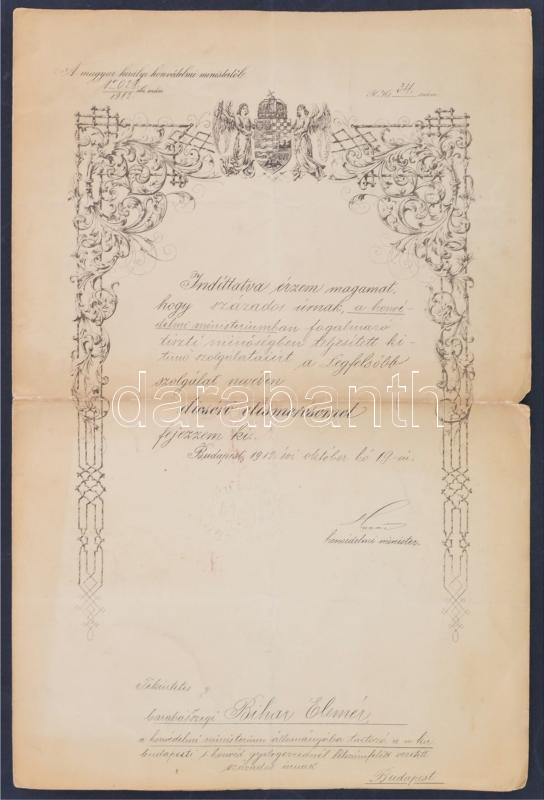 A magyar királyi honvédelmi ministertől
1912 évi szám
34 szám
Indíttatva érzem magamat,
hogy százados úrnak, a honvé-
delmi ministeriumban fogalmazó
tiszti minőségben teljesített ki-
tünő szolgálataiért a Legfelsőbb
szolgálat nevében
darabanth
dicsérő elismerésemet
fejezzem ki.
Budapest, 1912 évi október hó 19-én.
honvédelmi minister.
Tekintetes
Bihar Elemér,
a honvédelmi ministerium állományába tartozó, a m. kir.
budapesti 1. honvéd gyalogezrednél létszámfelett vezetett
százados úrnak
Budapest